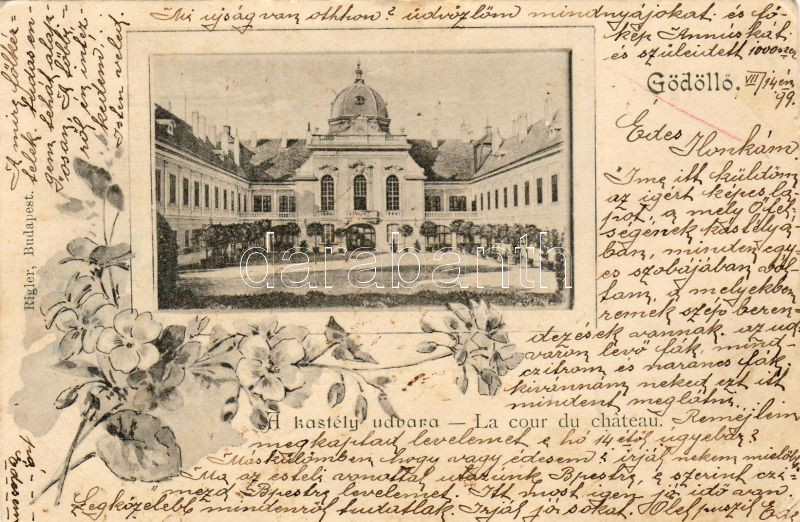 Mi ujság van otthon? üdvözlöm mindnyájokat és fő
kép Annuskát
és szüleidett 1000szer
Gödöllő. VII/14én
99.
Édes
Ilonkám!
"Ime itt küldöm
az igért képes la
pot, a mely Őfel
ségenek kastélyá
ban, minden egy
es szobájában vol
tam, a melyekben
remek szép beren
dezések vannak. az ud
varon levő fák, mind
czitrom és narancs fák,
kivánnám neked ezt itt
mindent meglátni.
A kastély udvara — La cour du château.
Reméjlem
megkaptad levelemet e hó 14étől ugyebár?
Máskülömben hogy vagy édesem? irjál nekem mielőbb
Ma az esteli vonattal utazunk Bpestre, e szerint czi
mezd Bpestre leveledet. Itt most igen jó idő van.
Legközelebb mindenről tudatlak. Irjál jó sokat. Ölel puszil
Rigler, Budapest.
darabanth